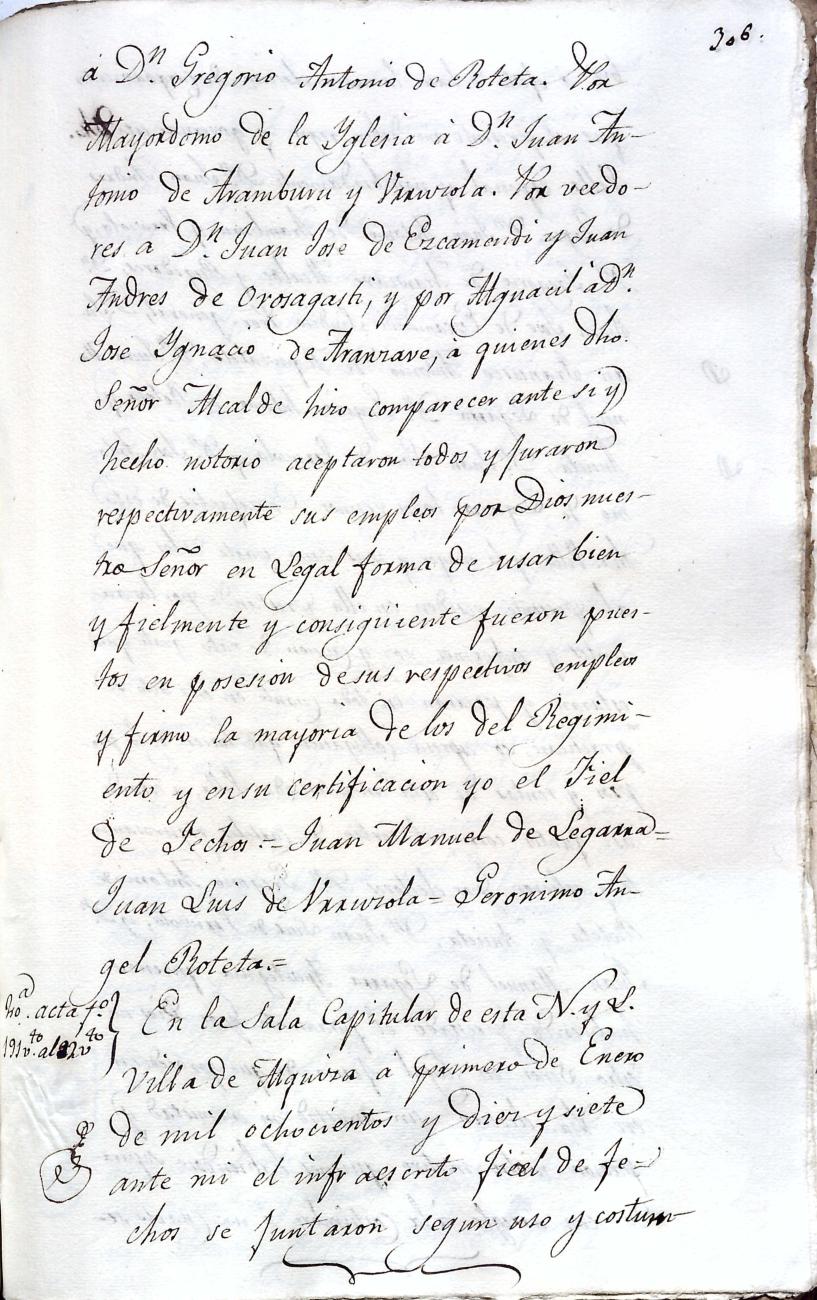 306.
á Dn. Gregorio Antonio de Roteta. Por
Mayordomo de la Yglesia á Dn. Juan An-
tonio de Aramburu y Vrruzola. Por veedo-
res a Dn. Juan José de Ezcamendi y Juan
Andres de Orosagasti, y por Alguacil á Dn.
José Ygnacio de Aranzave, á quienes dho.
Señor Alcalde hizo comparecer ante si y
hecho notorio aceptaron todos y juraron
respectivamente sus empleos por Dios nues-
tro Señor en Legal forma de usar bien
y fielmente y consigüiente fueron pues-
tos en posesión de sus respectivos empleos
y firmo la mayoria de los del Regimi-
ento y en su certificacion yo el Fiel
de Fechos.=Juan Manuel de Legarra=
Juan Luis de Vrruzola = Geronimo An-
gel Roteta.=
acta fo.
191 vto. al 92 vto
En la Sala Capitular de esta N. y L.
Villa de Alquiza á primero de Enero
de mil ochocientos y diez y siete
ante mi el infraescrito fiel de fe=
chos se juntaron según uso y costum-